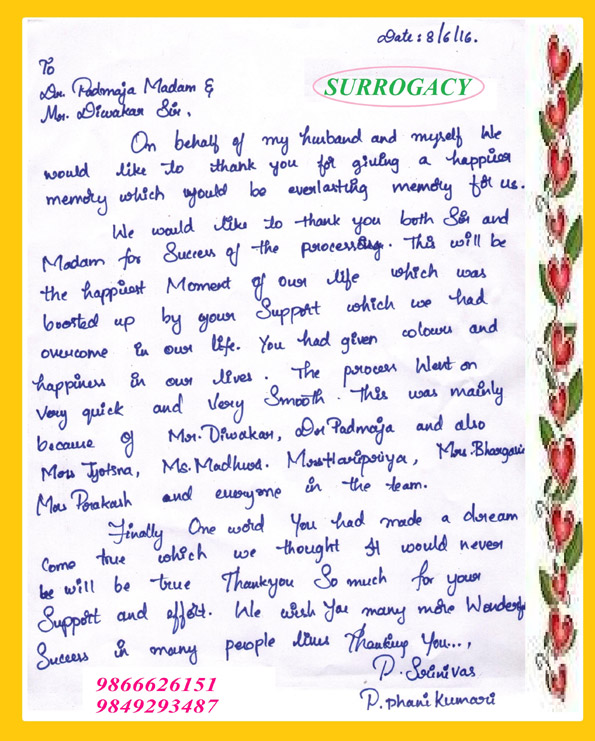 Date: 8/6/16.
To
Dr. Padmaja Madam &
Mr. Diwakar Sir,
SURROGACY
On behalf of my husband and myself We
would like to thank you for giving a happier
memory which would be everlasting memory for us.
We would like to thank you both Sir and
Madam for Success of the processing. This will be
the happiest Moment of our life which was
boosted up by your Support which we had
overcome in our life. You had given colours and
happiness in our lives. The process Went on
Very quick and Very Smooth. This was mainly
because of Mr. Diwakar, Dr Padmaja and also
Mrs Jyotsna, Ms. Madhura. Mrs Haripriya, Mrs. Bhargavi
Mrs Prakash and everyone in the team.
Finally One word You had made a dream
Come true which we thought It would never
be will be true Thankyou So much for your
Support and effort. We wish You many more Wonderful
Success in many people lives Thanking You...,
P. Srinivas
P. Phani Kumari
9866626151
9849293487